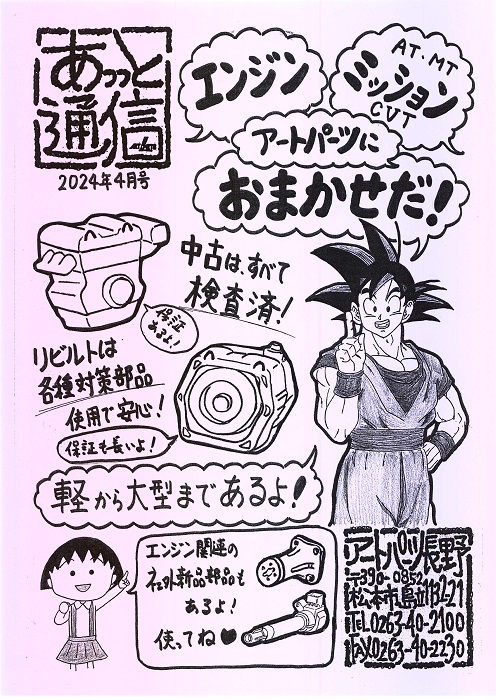 あっつと
通信
2024年4月号
エンジン
AT・MT
ミッション
CVT
アートパーツに
おまかせだ!
中古は、すべて
検査済!
保証
あるよ!
リビルトは
各種対策部品
使用で安心!
保証も長いよ!
軽から大型まであるよ!
エンジン関連の
社外新品部品も
あるよ!
使ってね♥
アートパーツ長野
〒390-0852
松本市島立1132-21
TEL0263-40-2100
FAX0263-40-2230